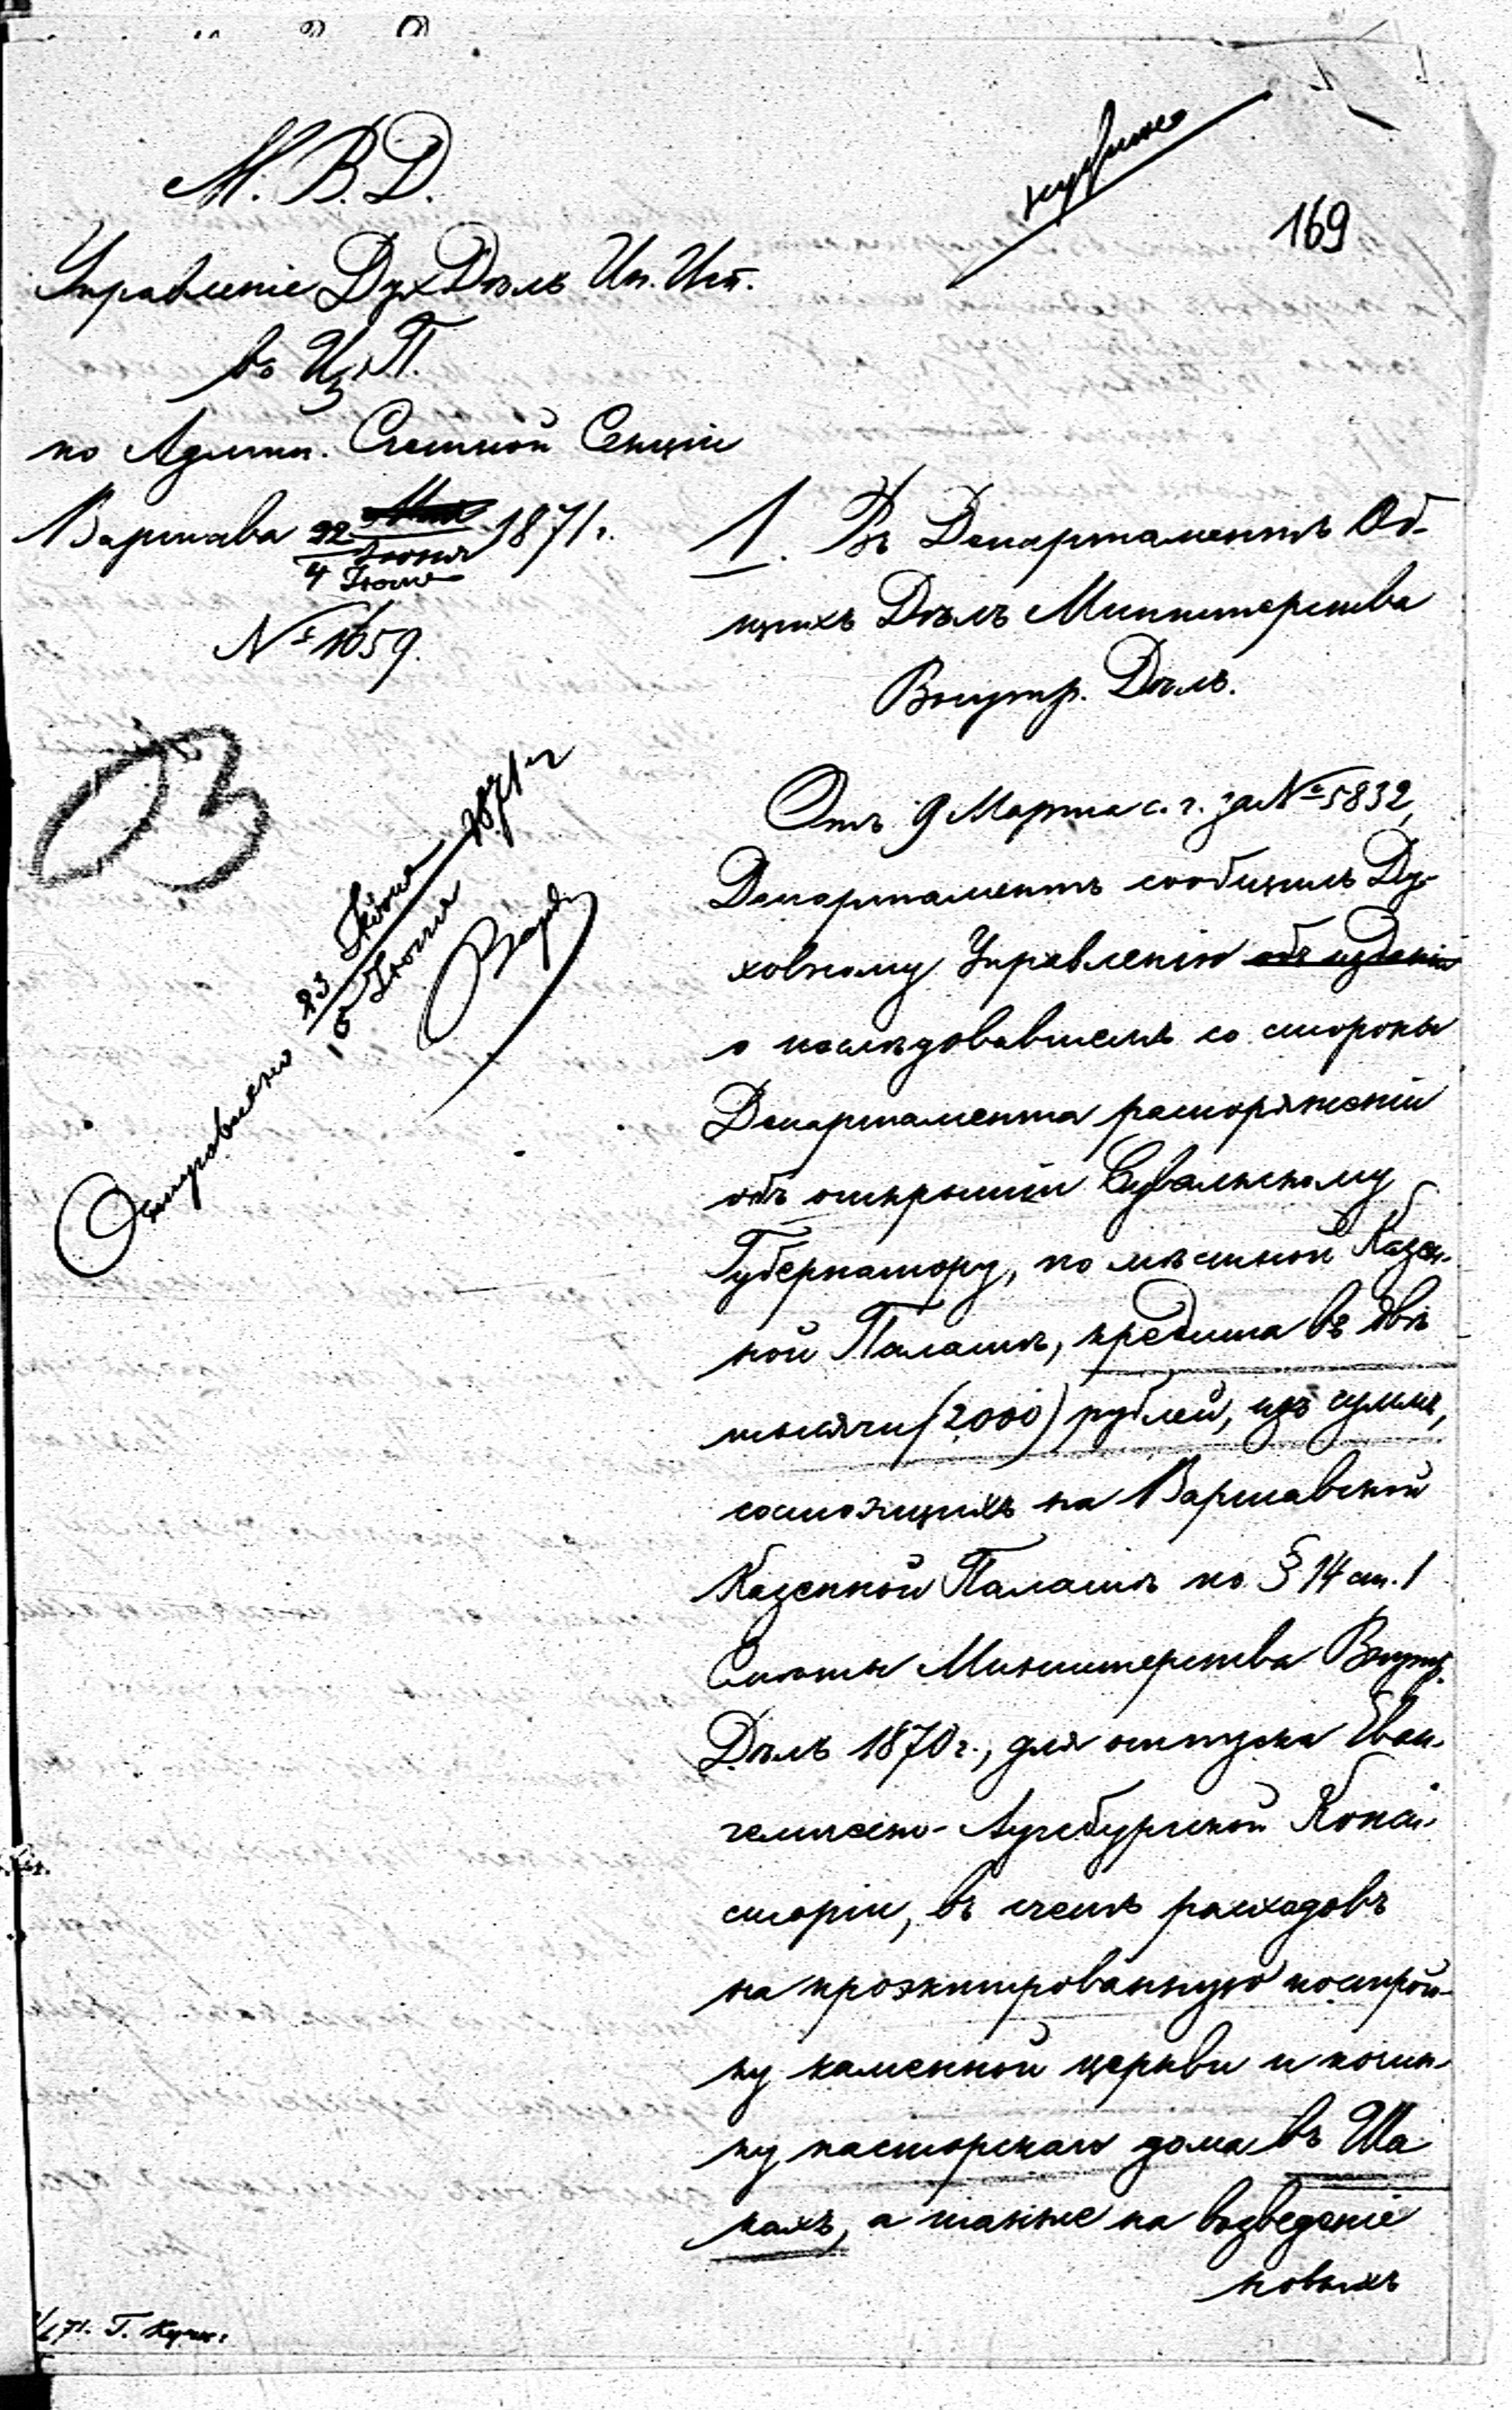 М. В. Д.
169
Управленіе Дух Дѣлъ Ин. Исп.
въ Ц. П.
по Админ. Счетной Секціи
Варшава 22 Іюня 1871 г.
4 Іюля
№ 1659.
1. Въ Департаментъ Об-
щихъ Дѣлъ Министерства
Внутр. Дѣлъ.
Отъ 9 Марта с. г. за № 5832,
Департаментъ сообщилъ Ду-
ховному Управленію
о послѣдовавшемъ со стороны
Департамента распоряженіи
объ открытіи Сувалкскому
Губернатору, по мѣстной Казен-
ной Палатѣ, кредита въ двѣ
тысячи (2000) рублей, изъ суммъ,
состоящихъ на Варшавской
Казенной Палатѣ по § 14 ст. 1
Смѣты Министерства Внутр.
Дѣлъ 1870 г., для отпуска Еван-
гелическо-Аугсбургской Конси-
сторіи, въ счетъ расходовъ
на проэктированную построй-
ку каменной церкви и почин-
ку пасторскаго дома въ Ша-
кахъ, а также на возведеніе
новыхъ
23 Іюня 1871 г.
5 Іюля